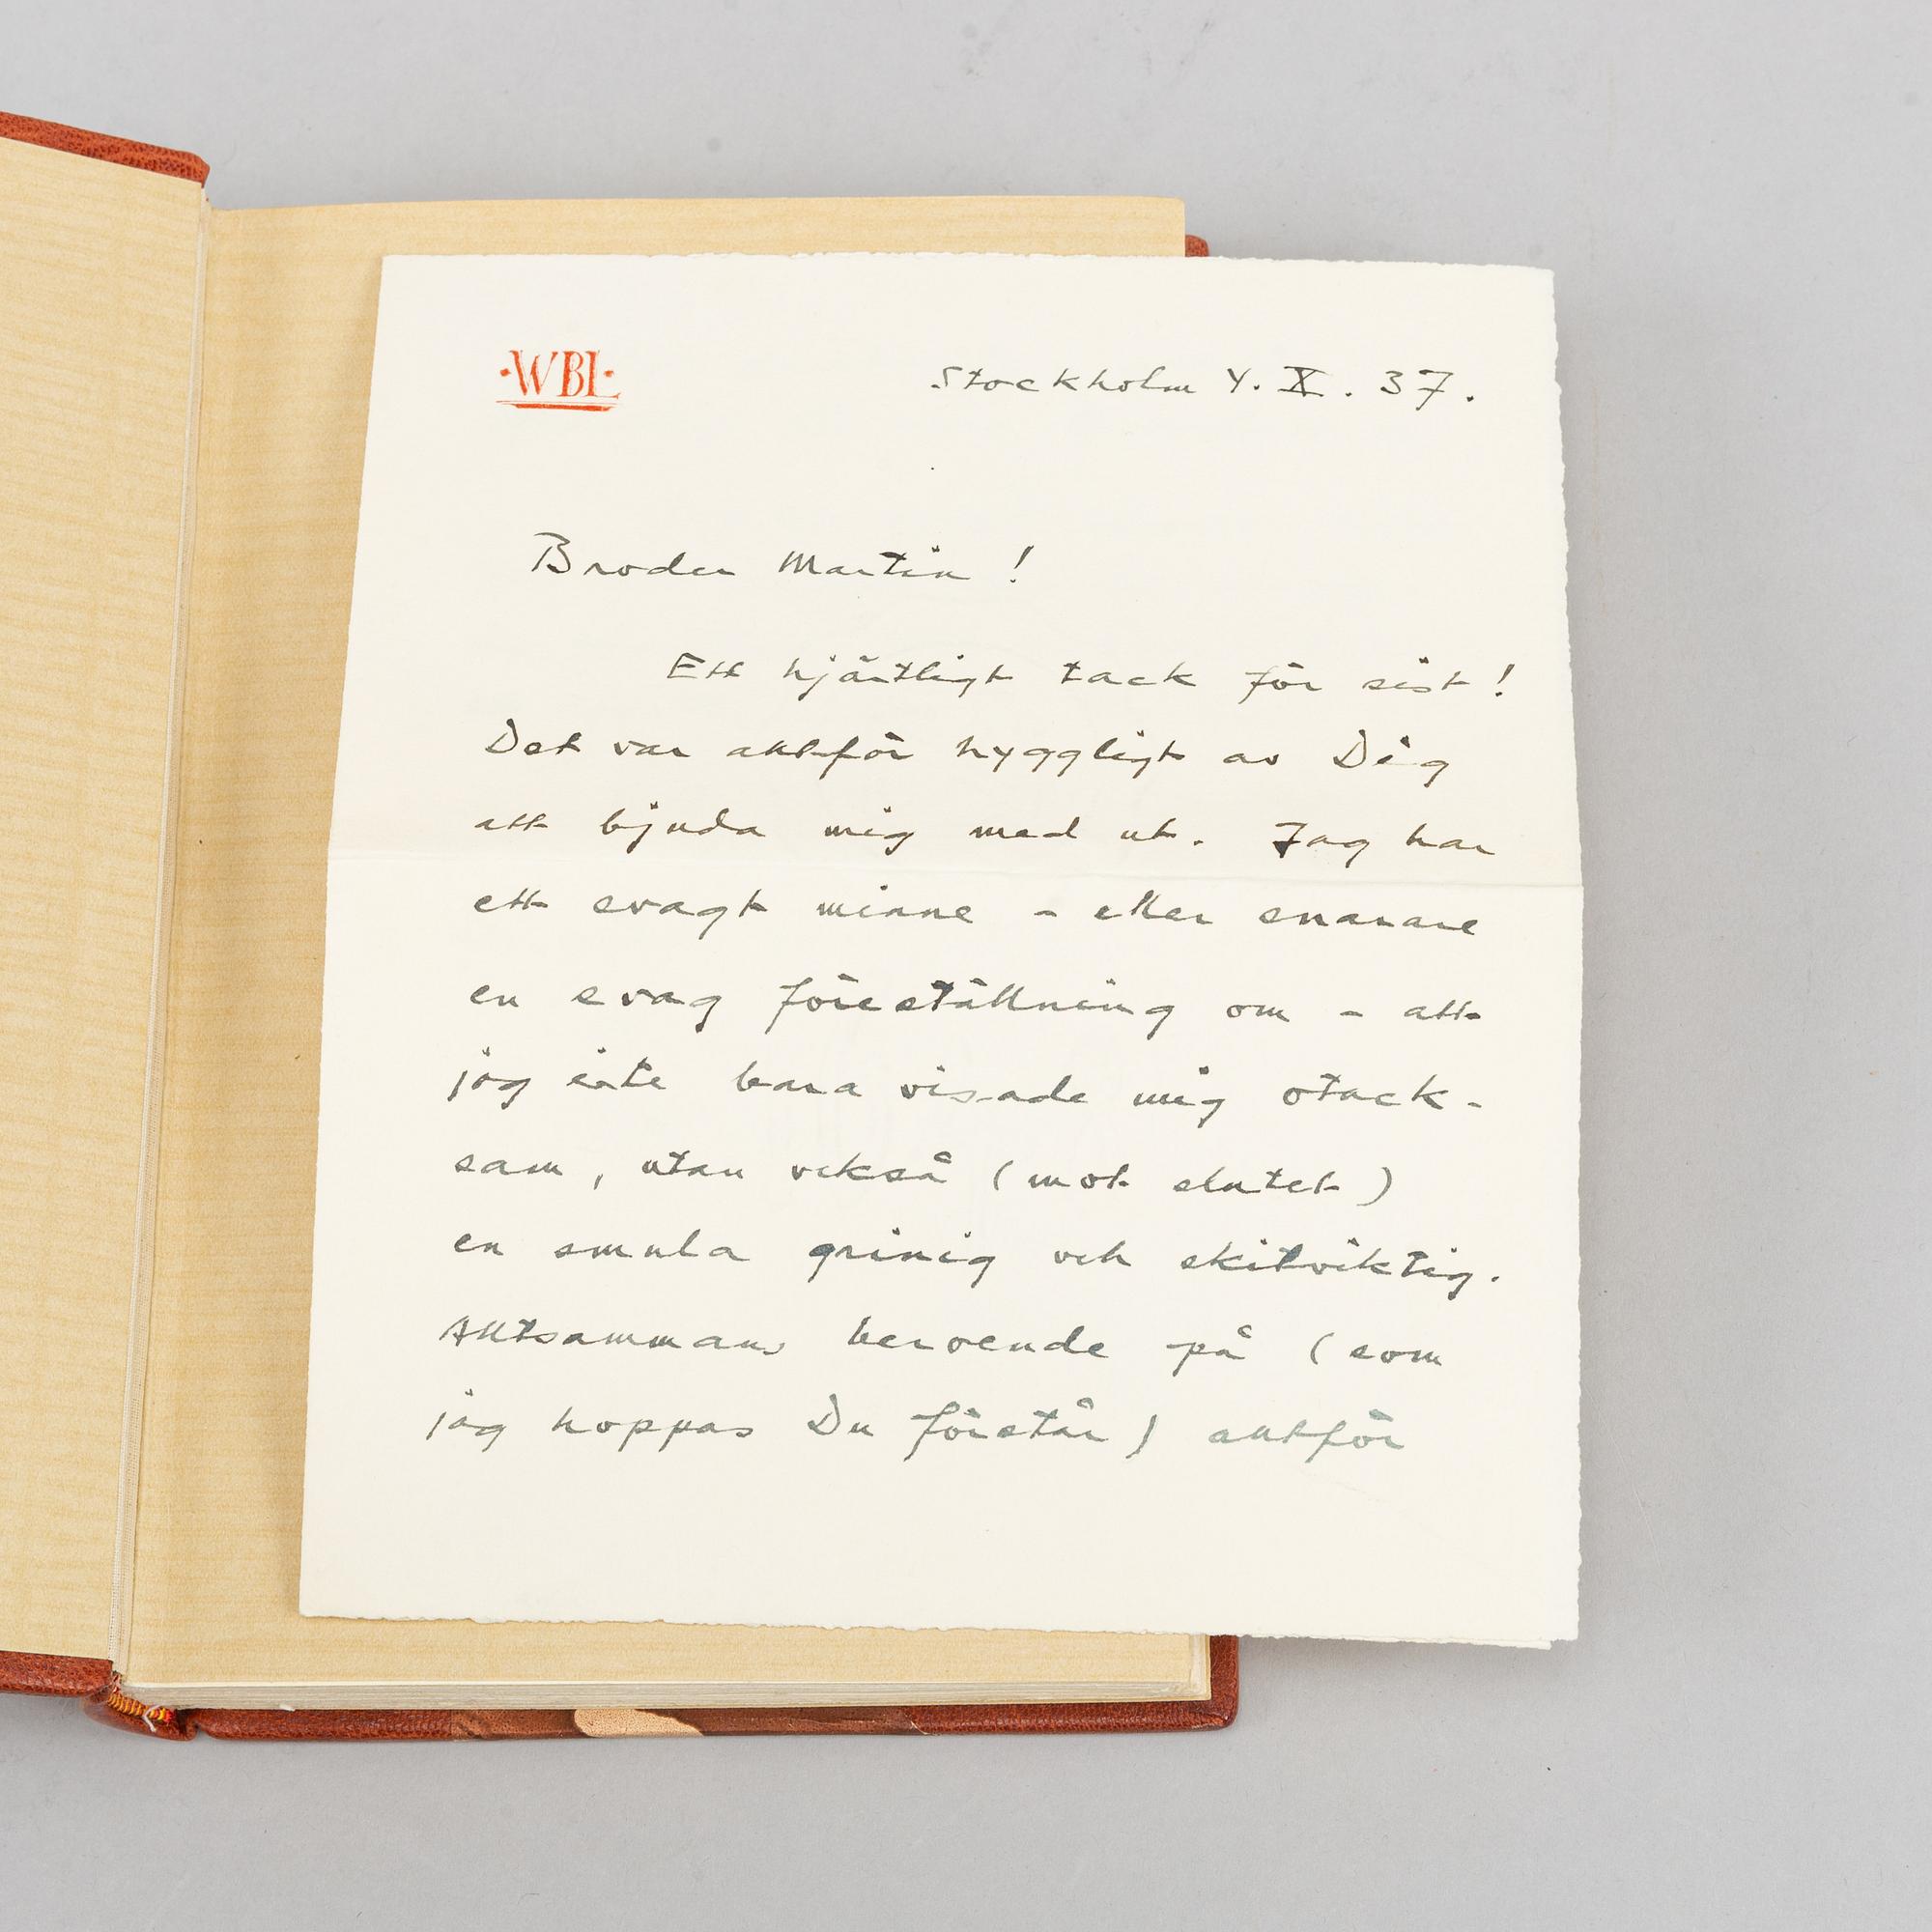 ·WBL·
Stockholm 4. X. 37.
Broder Martin!
Ett hjärtligt tack för sist!
Det var alltför hyggligt av Dig
att bjuda mig med ut. Jag har
ett svagt minne - eller snarare
en svag föreställning om - att
jag inte bara visade mig otack-
sam, utan också (mot slutet)
en smula grinig och skitviktig.
Alltsammans beroende på (som
jag hoppas Du förstår) alltför